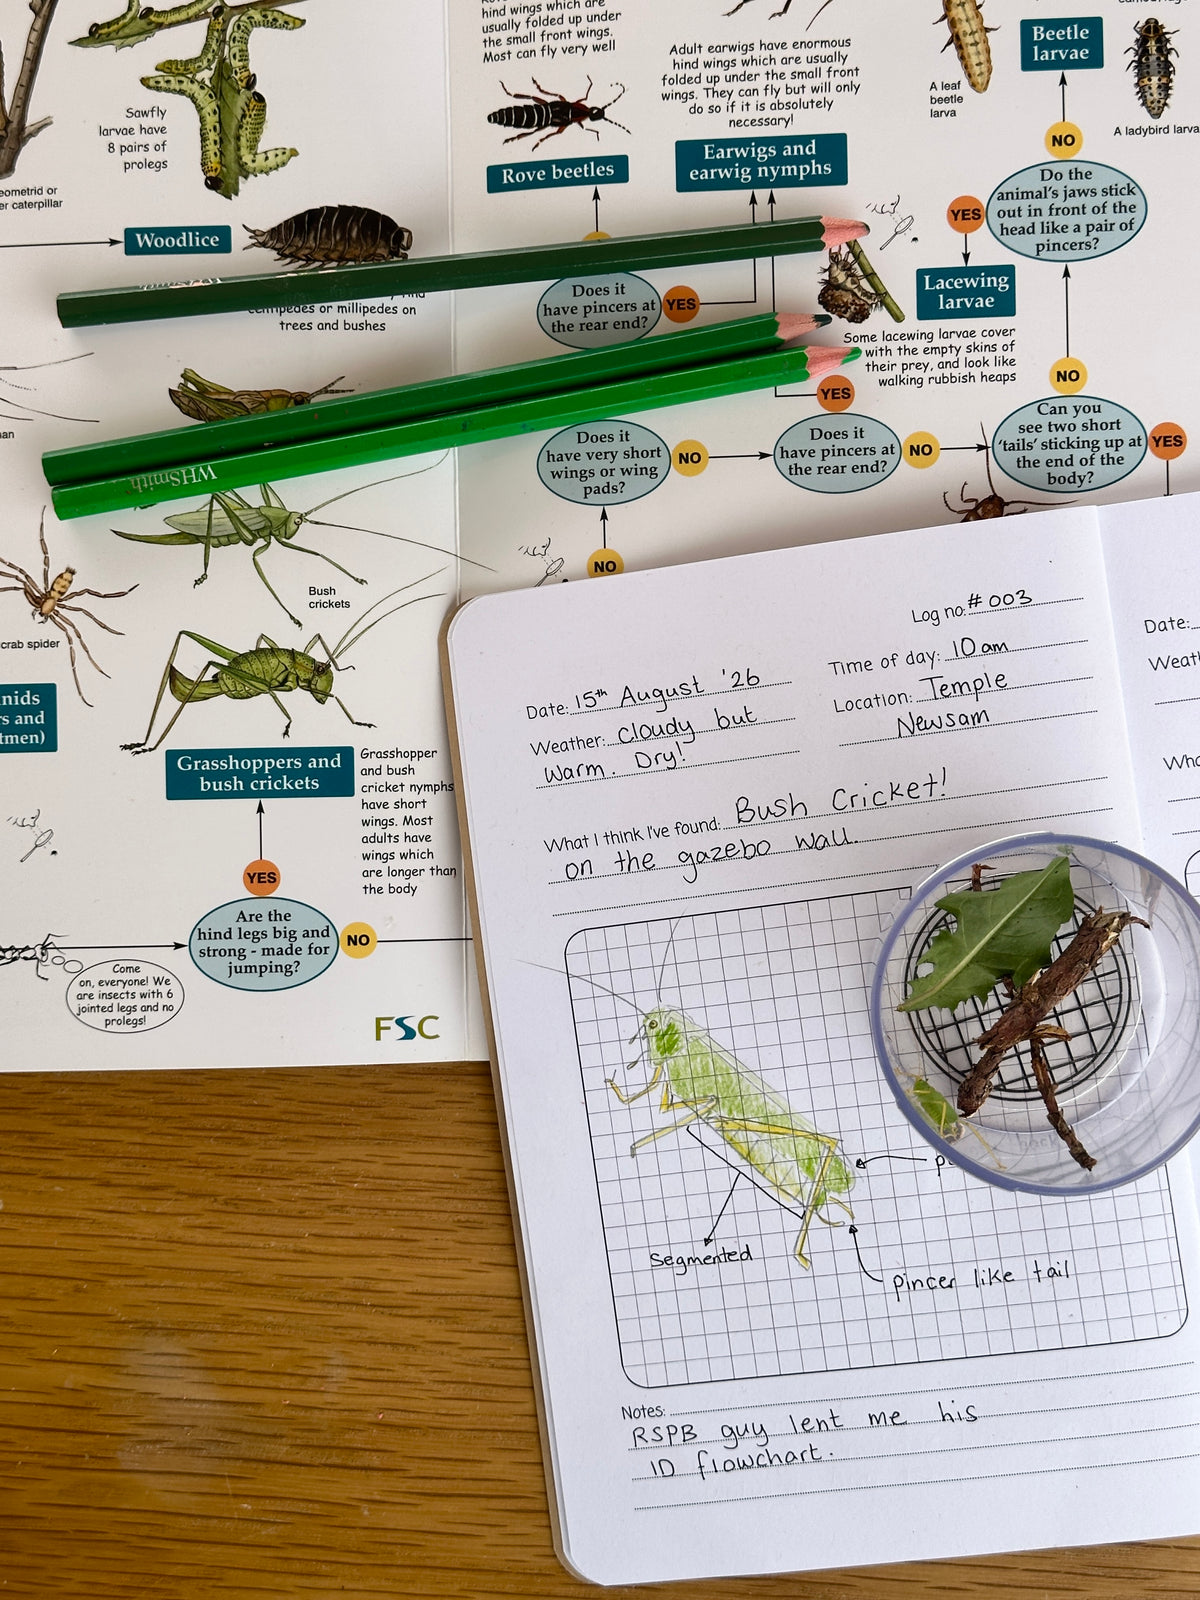 hind wings which are
usually folded up under
the small front wings.
Most can fly very well
Adult earwigs have enormous
hind wings which are usually
folded up under the small front
wings. They can fly but will only
do so if it is absolutely
necessary!
Sawfly
larvae have
8 pairs of
prolegs
A leaf
beetle
larva
Beetle
larvae
A ladybird larva
NO
Rove beetles
Earwigs and
earwig nymphs
eometrid or
er caterpillar
Woodlice
Do the
animal's jaws stick
out in front of the
head like a pair of
pincers?
YES
Lacewing
larvae
centipedes or millipedes on
trees and bushes
Does it
have pincers at
the rear end?
YES
Some lacewing larvae cover
with the empty skins of
their prey, and look like
walking rubbish heaps
NO
YES
WHSmith
Does it
have very short
wings or wing
pads?
NO
Does it
have pincers at
the rear end?
NO
Can you
see two short
'tails' sticking up at
the end of the
body?
YES
NO
Bush
crickets
crab spider
nids
rs and
tmen)
Grasshoppers and
bush crickets
Grasshopper
and bush
cricket nymphs
have short
wings. Most
adults have
wings which
are longer than
the body
YES
Are the
hind legs big and
strong - made for
jumping?
NO
Come
on, everyone! We
are insects with 6
jointed legs and no
prolegs!
FSC
Log no: # 003
Date: 15th August '26
Time of day: 10am
Weather: cloudy but
warm. Dry!
Location: Temple
Newsam
What I think I've found: Bush Cricket!
on the gazebo wall.
Segmented
pincer like tail
Notes:
RSPB guy lent me his
ID flowchart.
Date: